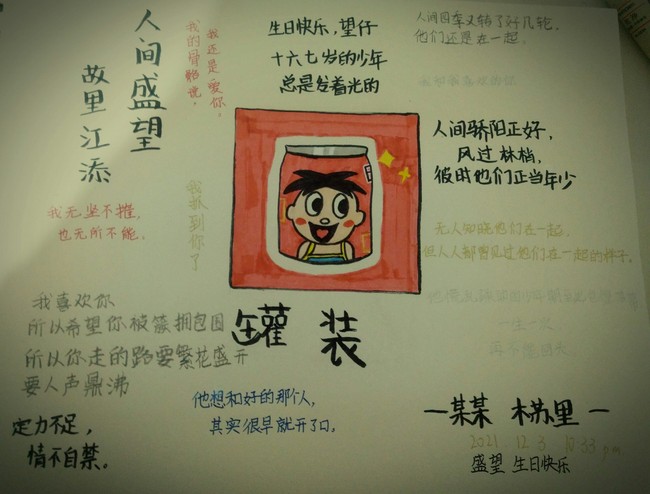 人间盛望
故里江添
我还是爱你，
我的骨骼说，
生日快乐，望仔
十六七岁的少年
总是发着光的
人间四季又转了好几轮，
他们还是在一起。
人间骄阳正好，
风过林梢，
彼时他们正当年少
我无坚不摧，
也无所不能。
我抓到你了
无人知晓他们在一起，
但人人都曾见过他们在一起的样子。
我喜欢你
所以希望你被簇拥包围
所以你走的路要繁花盛开
要人声鼎沸
罐装
一生一次，
再不能回头
定力不足，
情不自禁。
他想和好的那个人，
其实很早就开了口。
—某某 木苏里—
2021 12 3 10:33 pm
盛望 生日快乐